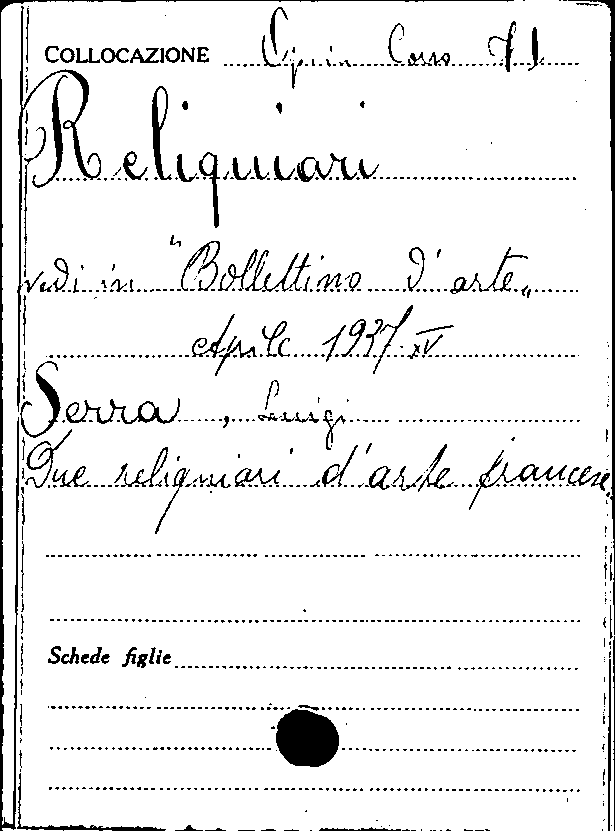 COLLOCAZIONE Op. in Corso 71
Reliquiari
vedi in "Bollettino d'arte„
Aprile 1937-XV
Serra, Luigi
Due reliquiari d'arte francese
Schede figlie